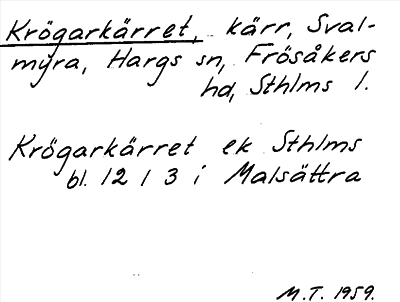 Krögarkärret, kärr, Sval-
myra, Hargs sn, Frösåkers
hd, Sthlms l.
Krögarkärret ek Sthlms
bl. 12 1 3 i Malsättra
M.T. 1959.